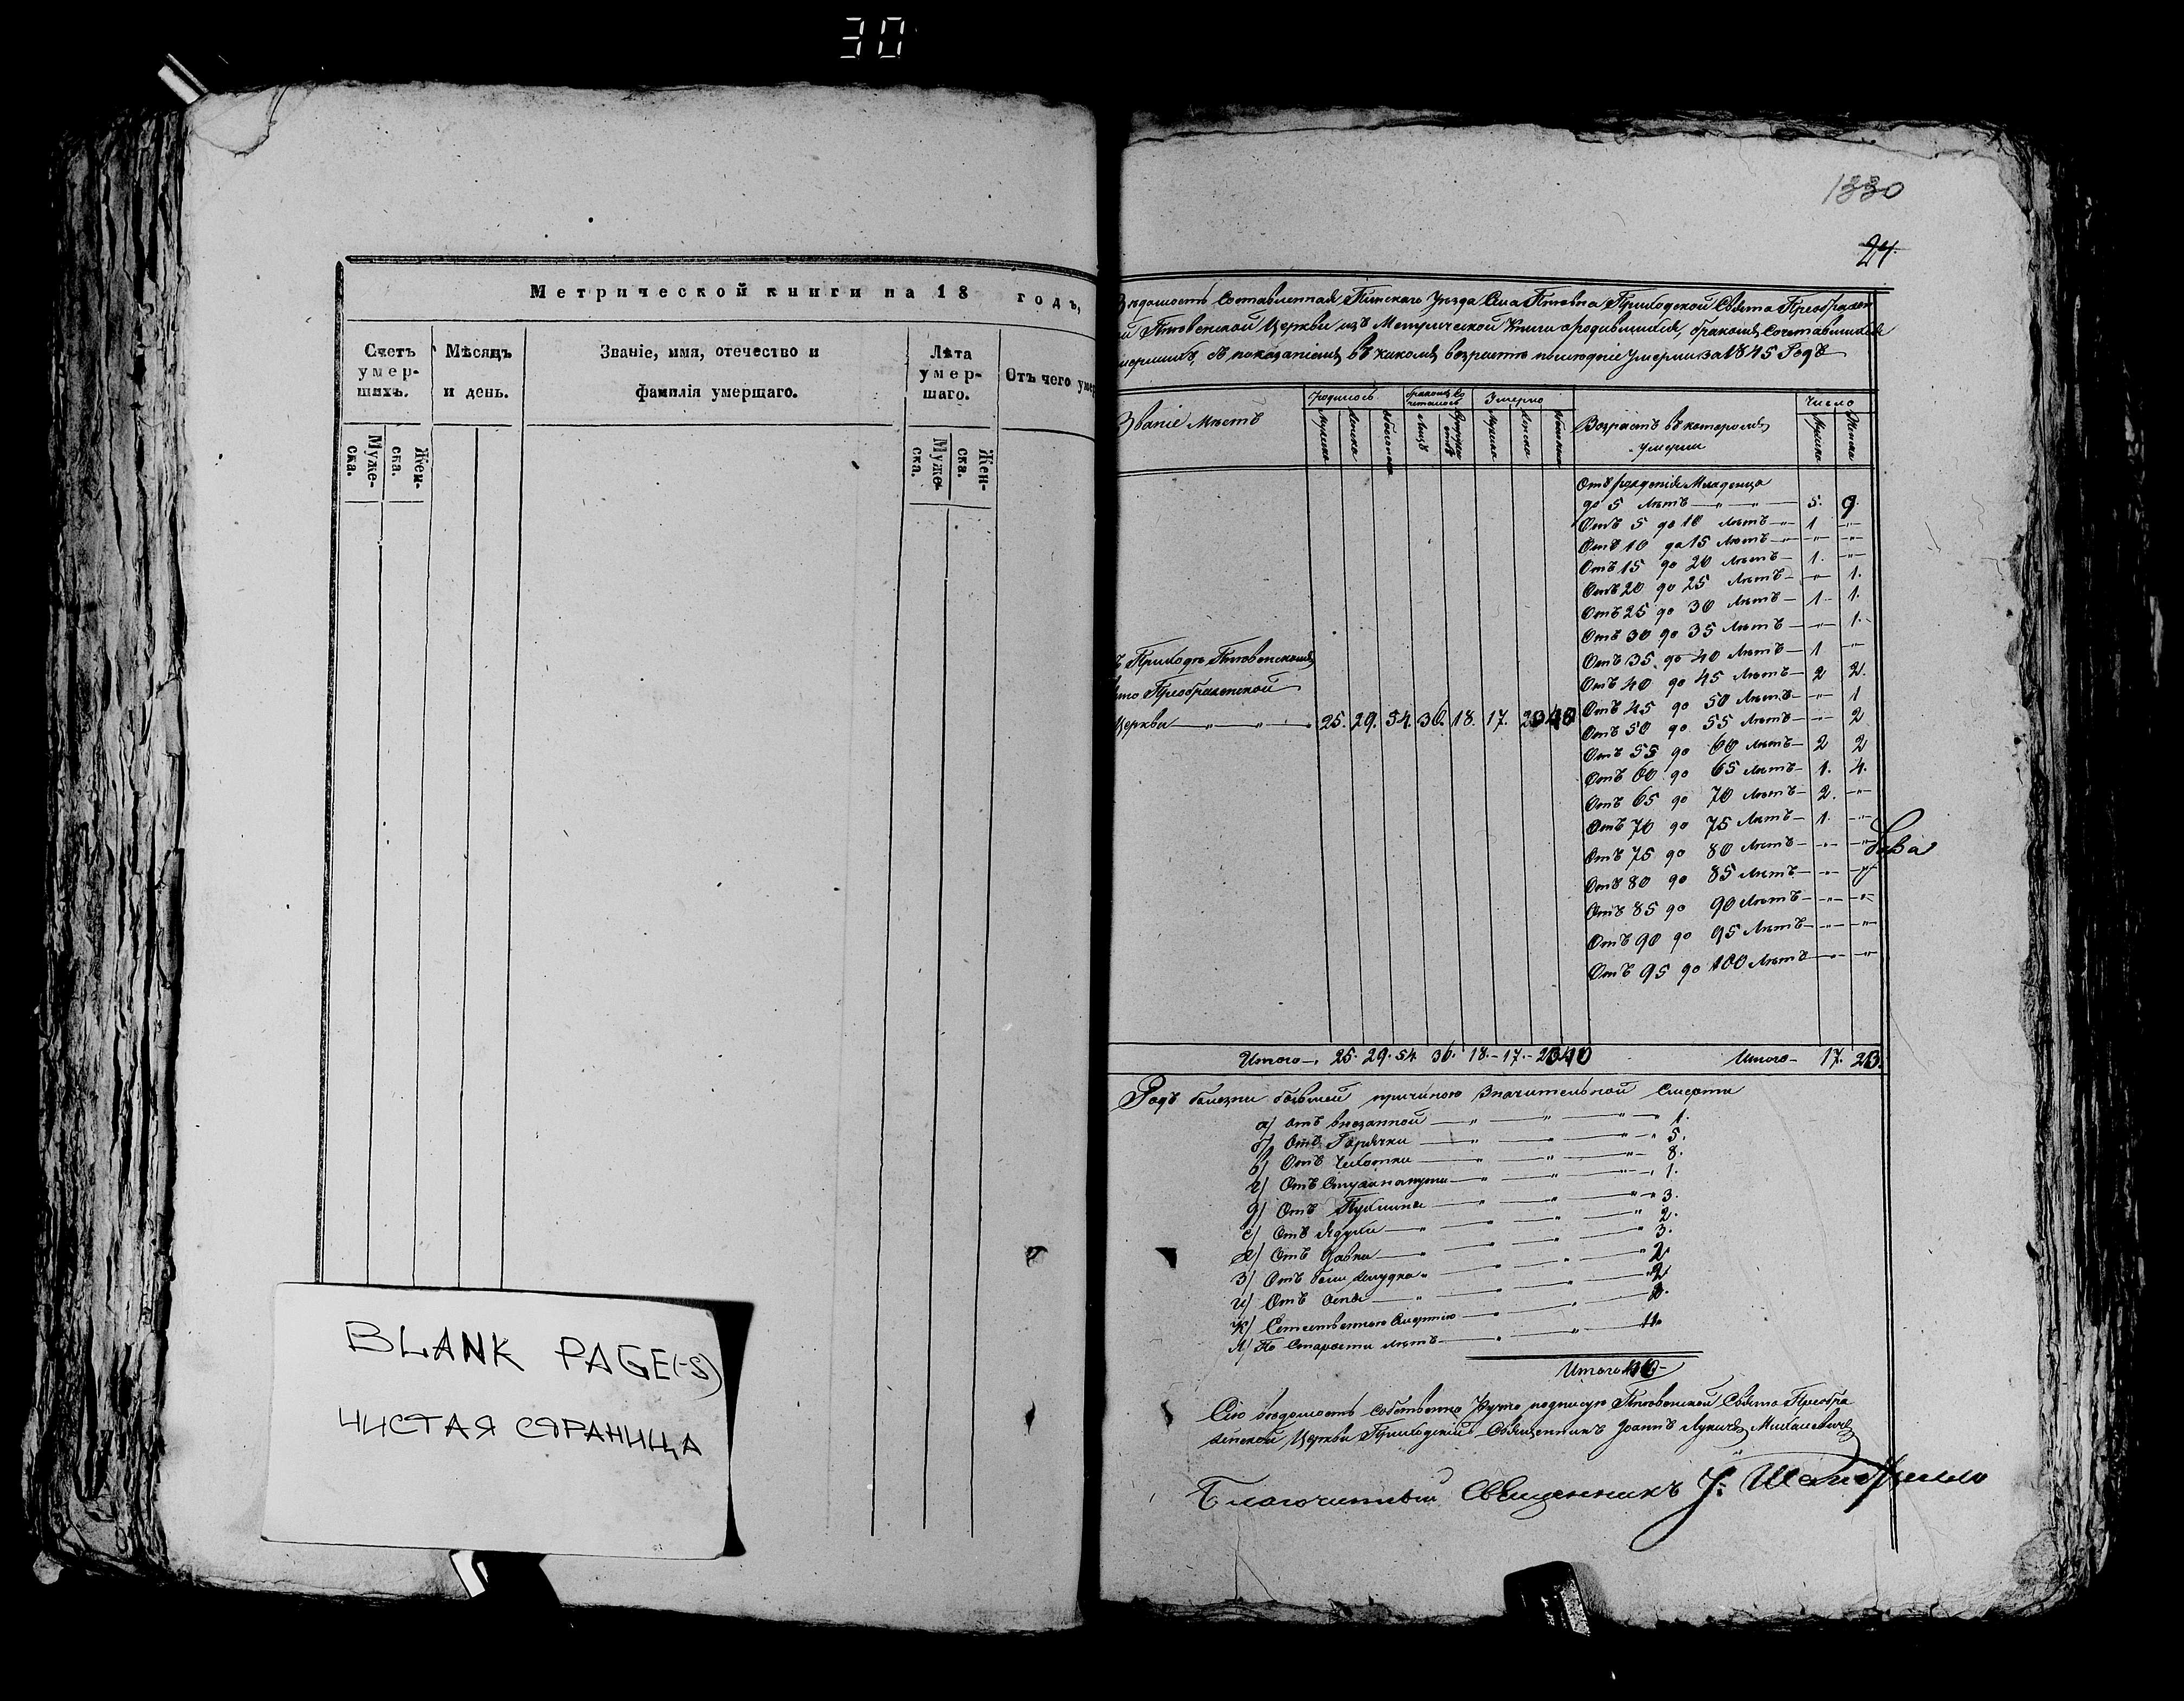 30
Метрической книги на 18 годъ,
Счетъ умер-шихъ.
Мѣсяцъ и день.
Званіе, имя, отечество и фамилія умершаго.
Лѣта умер-шаго.
Отъ чего умер
Муже-ска.
Жен-ска.
Муже-ска.
Жен-ска.
BLANK PAGE(-S)
ЧИСТАЯ СТРАНИЦА
1330
24
Вѣдомость Составленная Пинскаго Уѣзда Приходской Свято Преображен
Церкви изъ Метрической Книги о родившихся, бракомъ Сочетавшихся
съ показаніемъ въ какомъ возрастѣ Умерли за 1845 Годъ
Званіе Мѣстъ
Родилось
Умерло
Возрастъ въ которомъ Умерли
Число
Отъ рожденія Младенца
до 5 Лѣтъ 5. 9.
Отъ 5 до 10 Лѣтъ 1 "
Отъ 10 до 15 Лѣтъ " "
Отъ 15 до 20 Лѣтъ 1. "
Отъ 20 до 25 Лѣтъ " 1.
Отъ 25 до 30 Лѣтъ 1 1.
Отъ 30 до 35 Лѣтъ " 1.
Отъ 35 до 40 Лѣтъ 1 "
Отъ 40 до 45 Лѣтъ 2 2.
Отъ 45 до 50 Лѣтъ " 1
Отъ 50 до 55 Лѣтъ " 2
Отъ 55 до 60 Лѣтъ 2 2
Отъ 60 до 65 Лѣтъ 1. 4.
Отъ 65 до 70 Лѣтъ 2. "
Отъ 70 до 75 Лѣтъ 1. "
Отъ 75 до 80 Лѣтъ " "
Отъ 80 до 85 Лѣтъ "
Отъ 85 до 90 Лѣтъ " "
Отъ 90 до 95 Лѣтъ " "
Отъ 95 до 100 Лѣтъ " "
Преображенской
Церкви " " 25. 29. 54. 36. 18. 17. 23 40
Итого 25. 29. 54 36. 18. 17. 23 40
Итого 17. 23.
Родъ болезни бывшей причиною Значительной Смерти
а) отъ внезапной 1.
б) Отъ Горячки 5.
в) Отъ Чахотки 8.
г) Отъ 1.
д) Отъ 3.
е) Отъ Ядухи 2.
ж) Отъ 3.
з) Отъ боли желудка 2
и) Отъ Оспы 2
к) Естественною Смертію
л) По Старости лѣтъ 11.
Итого 40
Сію вѣдомость Собственно Ручно подписую Свято Преобра
женской Церкви Приходскій Священникъ Іоаннъ
Благочинный Священникъ